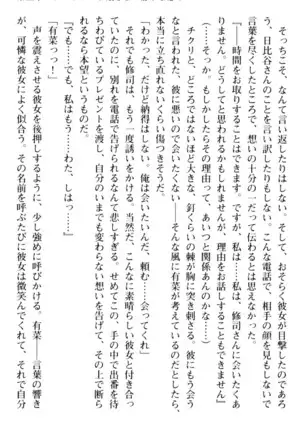 そっちこそ、なんて言い返したりはしない。おそらく彼女が目撃したであろ
う、日比谷さんのことを言い訳したりもしない。こんな電話で、相手の顔を見もしないで
言葉を尽くしたところで、想いの十分の一だって伝わるとは思えなかった。
『――時間をお取りすることはできます。ですが、私は……私は、修司さんに会いたくあ
りません。どうしてと思われるかもしれませんが、理由をお話しすることもできません』
(……そっか。もしかしたらその理由って、あいつと関係あんのかな……)
チクリと、どころではないほど大きな、釘くらいの棘が胸に突き刺さる。彼にもう会う
なと言われた、彼に悪いので会いたくない――そんな風に有菜が考えているのだとしたら、
本当に立ち直れないくらい傷つきそうだ。
「わかった。だけど納得はしない。俺は会いたいんだ、頼む……会ってくれ」
それでも修司は、もう一度誘いをかける。当然だ、こんなに素晴らしい彼女と付き合っ
ていたのに、別れを電話で告げられるなんて悲しすぎる。せめてこの、手の中で出番を待
ちわびているプレゼントを渡し、自分のいまでも変わらない想いを告げて、その上で断ら
れるなら本望というものだ。
『でも……でも、私はもう……わた、しはっ……』
「有菜っっ！」
声を震えさせる彼女を後押しするように、少し強めに呼びかける。有菜――言葉の響き
が、可憐な彼女によく似合う。その名前を呼ぶたびに彼女は微笑んでくれて、それで自分